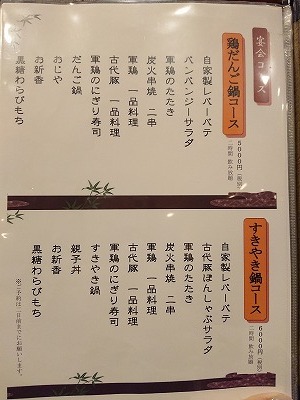 宴会コース
鶏だんご鍋コース
5000円(税別)
二時間 飲み放題
自家製レバーパテ
バンバンジーサラダ
軍鶏のたたき
炭火串焼 二串
軍鶏 一品料理
古代豚 一品料理
軍鶏のにぎり寿司
だんご鍋
おじや
お新香
黒糖わらびもち
すきやき鍋コース
6000円(税別)
二時間 飲み放題
自家製レバーパテ
古代豚ほんしゃぶサラダ
軍鶏のたたき
炭火串焼 二串
軍鶏 一品料理
古代豚 一品料理
軍鶏のにぎり寿司
すきやき鍋
親子丼
お新香
黒糖わらびもち
※ご予約は二日前までにお願いします。